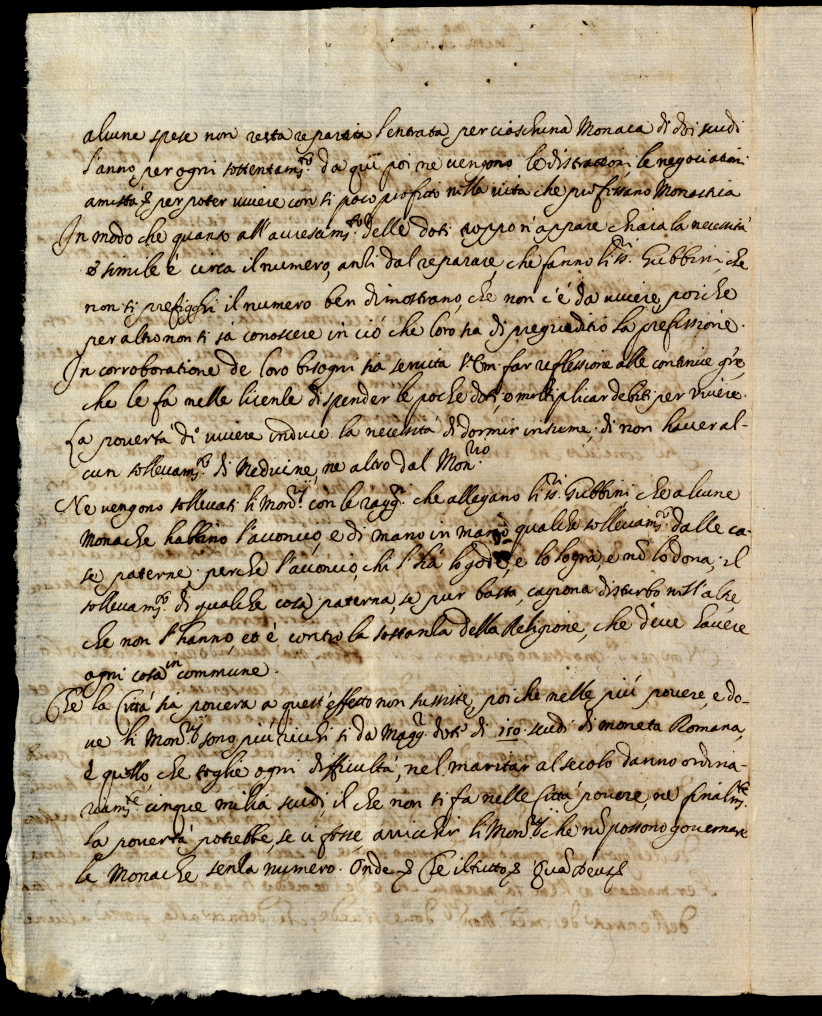 alcune spese non resta reparata l'entrata per ciaschuna Monaca di doi scudi
l'anno, per ogni sostentam.to da qui poi ne vengono le distrattioni, le negociationi
amistà, per poter vivere con si poco profitto nella vita che professano Monachia
In modo che quanto all'accrescim.to delle doti troppo n'appare chiara la necessità
e simile è circa il numero, anzi dal reparare, che fanno li ss.ri Gubbini, che
non si prefigghi il numero ben dimostrano, che non c'è da vivere, poiche
per altro non si sa conoscere in ciò che loro sia di pregiuditio la prefissione.
In corroboratione de loro bisogni sia servita V. Em. far reflessione alle continue gr.e
che le fa nelle licenze di spender le poche doti, o moltiplicar debiti per vivere.
La povertà di vivere induce la necessità di dormir insieme, di non haver al-
cun sollevam.to di Medicine, ne altro dal Mon.rio
Ne vengono sollevati li Mon.rii con le ragg.i che allegano li ss.ri Gubbini che alcune
Monache habbino l'acconcio, e di mano in mano qualche sollevam.to dalle ca-
se paterne. perche l'acconcio, chi l'hà lo gode, e lo logra, e nõ lo dona, il
sollevam.to di qualche cosa paterna, se pur basta, cagiona disturbo nell'altre
che non l'hanno, et è contro la sostanza della Religione, che deve havere
ogni cosa in commune.
Che la Città sia povera a quest'effetto non sussiste, poiche nelle più povere, e do-
ve li Mon.rii sono più ricchi si da Magg.r dote di 150 scudi di moneta Romana,
è quello, che toglie ogni difficultà, nel maritar al secolo danno ordina-
riam.te cinque milia scudi il che non si fa nelle Città povere, ne finalm.te
la povertà potrebbe, se ci fosse arricchir li Mon.rii che nõ possono governare
le Monache senza numero. Onde Che il tutto Quã Deus